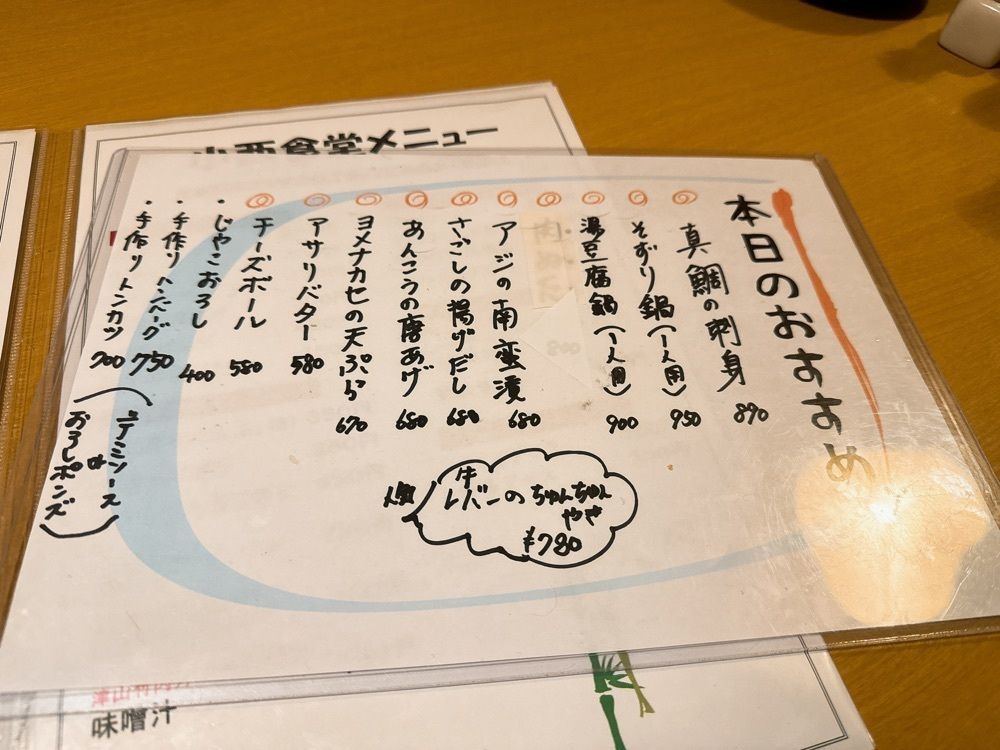 本日のおすすめ
真鯛の刺身 890
そずり鍋(1人用) 950
湯豆腐鍋(1人用) 900
アジの南蛮漬 680
さごしの揚げだし 680
あんこうの唐あげ 680
ヨメナカセの天ぷら 670
アサリバター 580
チーズボール 580
・じゃこおろし 400
・手作りハンバーグ 750
・手作りトンカツ 700
(デミソース
or
おろしポンズ)
人気
牛レバーのちゅんちゅん
やき
¥780
山西食堂メニュー
味噌汁